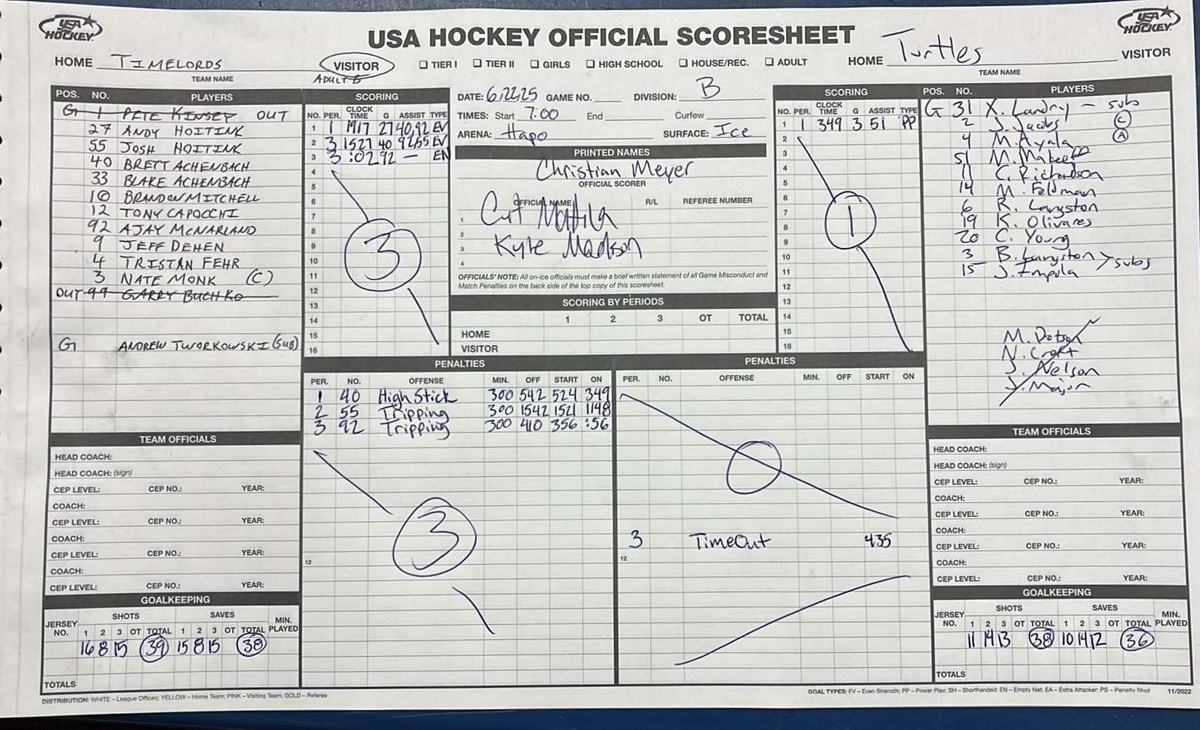 USA HOCKEY
USA HOCKEY OFFICIAL SCORESHEET
USA HOCKEY
HOME TIMELORDS
TEAM NAME
VISITOR
ADULT B
☐ TIER I ☐ TIER II ☐ GIRLS ☐ HIGH SCHOOL ☐ HOUSE/REC. ☐ ADULT
HOME Turtles VISITOR
TEAM NAME
POS. NO. PLAYERS
G 1 PETE KINSEY OUT
27 ANDY HOITINK
55 JOSH HOITINK
40 BRETT ACHENBACH
33 BLAKE ACHENBACH
10 BRANDON MITCHELL
12 TONY CAPOCCHI
92 AJAY MCNARLAND
9 JEFF DEHEN
4 TRISTAN FEHR
3 NATE MONK (C)
OUT 99 GARRY BUCHKO
G ANDREW TWORKOWSKI (SUB)
SCORING
NO. PER. CLOCK TIME G ASSIST TYPE
1 1 1917 27 40,92 EV
2 3 1527 40 92,55 EV
3 3 :02 92 — EN
4
5
6
7
8
9
10
11
12
13
14
15
16
3
DATE: 6/22/25 GAME NO. DIVISION: B
TIMES: Start 7:00 End Curfew
ARENA: Hapo SURFACE: Ice
PRINTED NAMES
Christian Meyer
OFFICIAL SCORER
OFFICIAL NAME R/L REFEREE NUMBER
1
2
3 Kyle Madson
4
OFFICIALS' NOTE: All on-ice officials must make a brief written statement of all Game Misconduct and
Match Penalties on the back side of the top copy of this scoresheet.
SCORING BY PERIODS
1 2 3 OT TOTAL
HOME
VISITOR
SCORING
NO. PER. CLOCK TIME G ASSIST TYPE
1 1 349 3 51 PP
2
3
4
5
6
7
8
9
10
11
12
13
14
15
16
1
POS. NO. PLAYERS
G 31 X. Landry — sub
2 J. Jacobs (C)
4 M. Ayala (A)
51
11 C. Richardson
14 M. Feldman
6 R. Langston
19 K. Olivares
20 C. Young
3 B. Langston > subs
15 J. Impala
M. Dotson
N. Croft
J. Nelson
J. Major
PENALTIES
PER. NO. OFFENSE MIN. OFF START ON
1 40 High Stick 300 542 524 349
2 55 Tripping 300 1542 1521 1148
3 92 Tripping 300 410 356 :56
3
12
PENALTIES
PER. NO. OFFENSE MIN. OFF START ON
0
3 TimeOut 435
12
TEAM OFFICIALS
HEAD COACH:
HEAD COACH: (sign)
CEP LEVEL: CEP NO.: YEAR:
COACH:
CEP LEVEL: CEP NO.: YEAR:
COACH:
CEP LEVEL: CEP NO.: YEAR:
COACH:
CEP LEVEL: CEP NO.: YEAR:
GOALKEEPING
JERSEY NO. SHOTS SAVES MIN. PLAYED
1 2 3 OT TOTAL 1 2 3 OT TOTAL
16 8 15 39 15 8 15 38
TOTALS
TEAM OFFICIALS
HEAD COACH:
HEAD COACH: (sign)
CEP LEVEL: CEP NO.: YEAR:
COACH:
CEP LEVEL: CEP NO.: YEAR:
COACH:
CEP LEVEL: CEP NO.: YEAR:
COACH:
CEP LEVEL: CEP NO.: YEAR:
GOALKEEPING
JERSEY NO. SHOTS SAVES MIN. PLAYED
1 2 3 OT TOTAL 1 2 3 OT TOTAL
11 14 13 38 10 14 12 36
TOTALS
DISTRIBUTION: WHITE – League Offices; YELLOW – Home Team; PINK – Visiting Team; GOLD – Referee
GOAL TYPES: EV – Even Strength; PP – Power Play; SH – Shorthanded; EN – Empty Net; EA – Extra Attacker; PS – Penalty Shot 11/2022